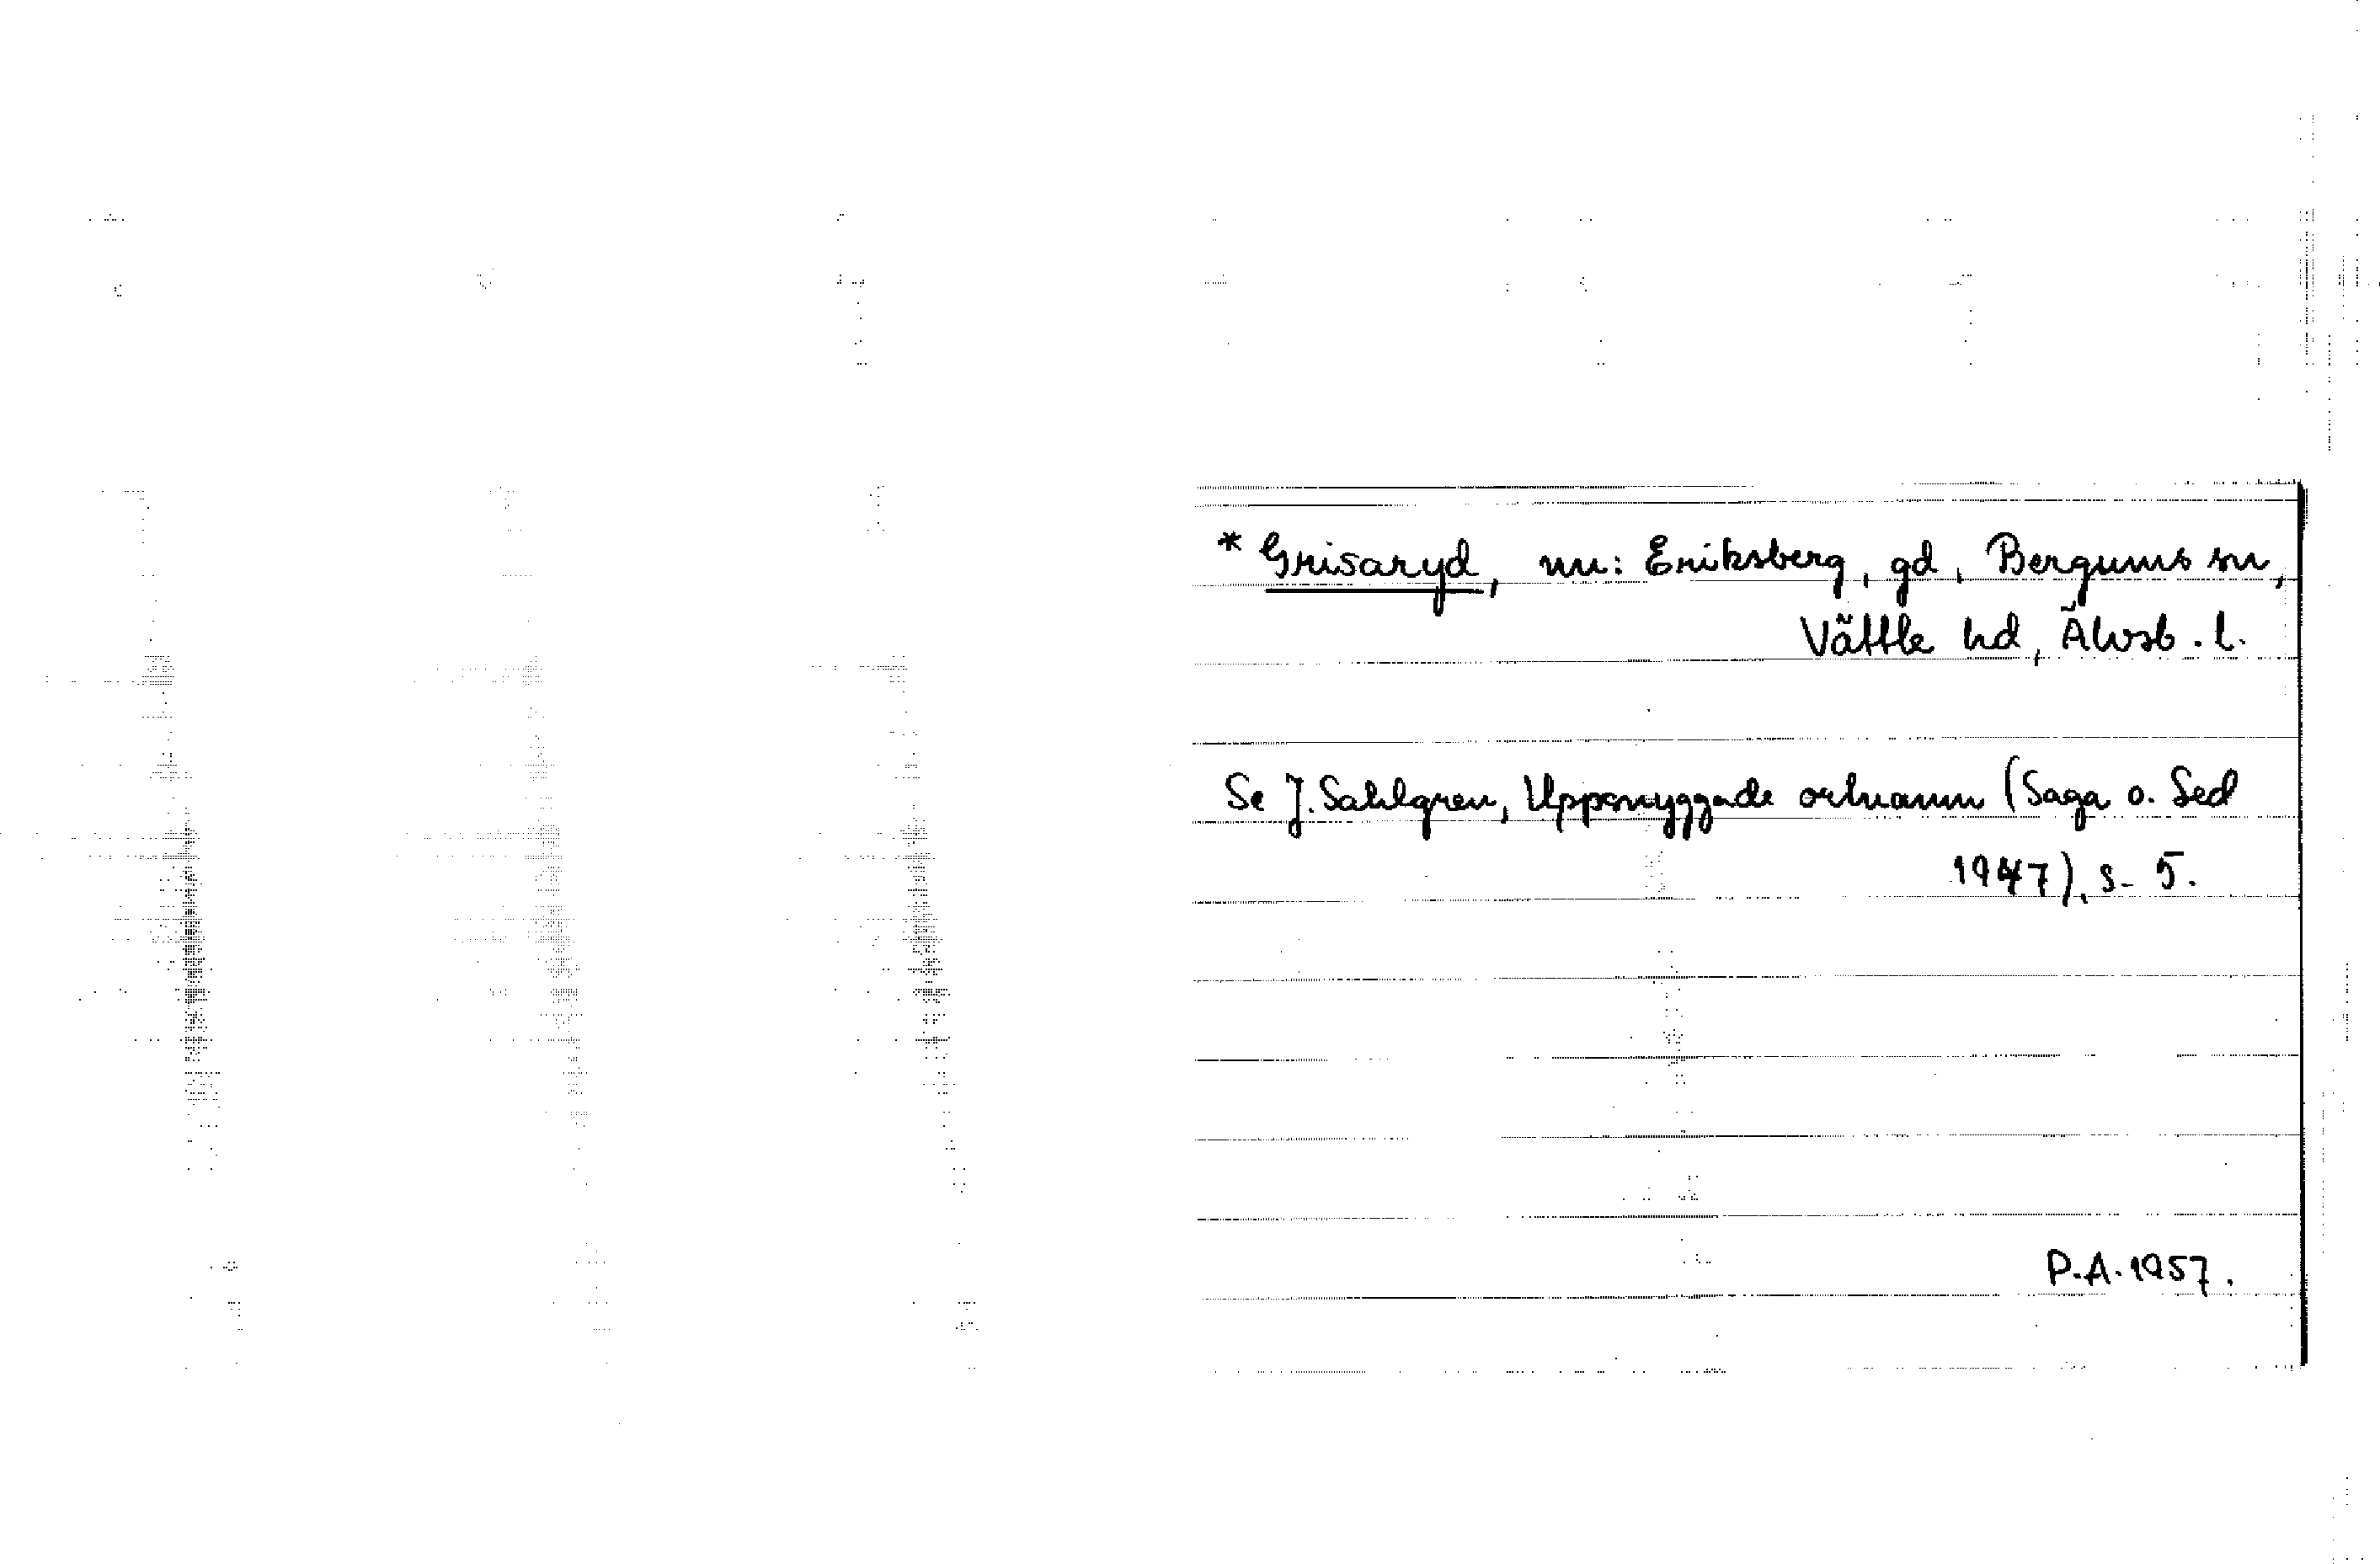 * Grisaryd, nu: Eriksberg, gd, Bergums sn,
Vättle hd, Älvsb. l.
Se J. Sahlgren, Uppsnyggade ortnamn (Saga o. Sed
1947), s. 5.
P.A. 1957.